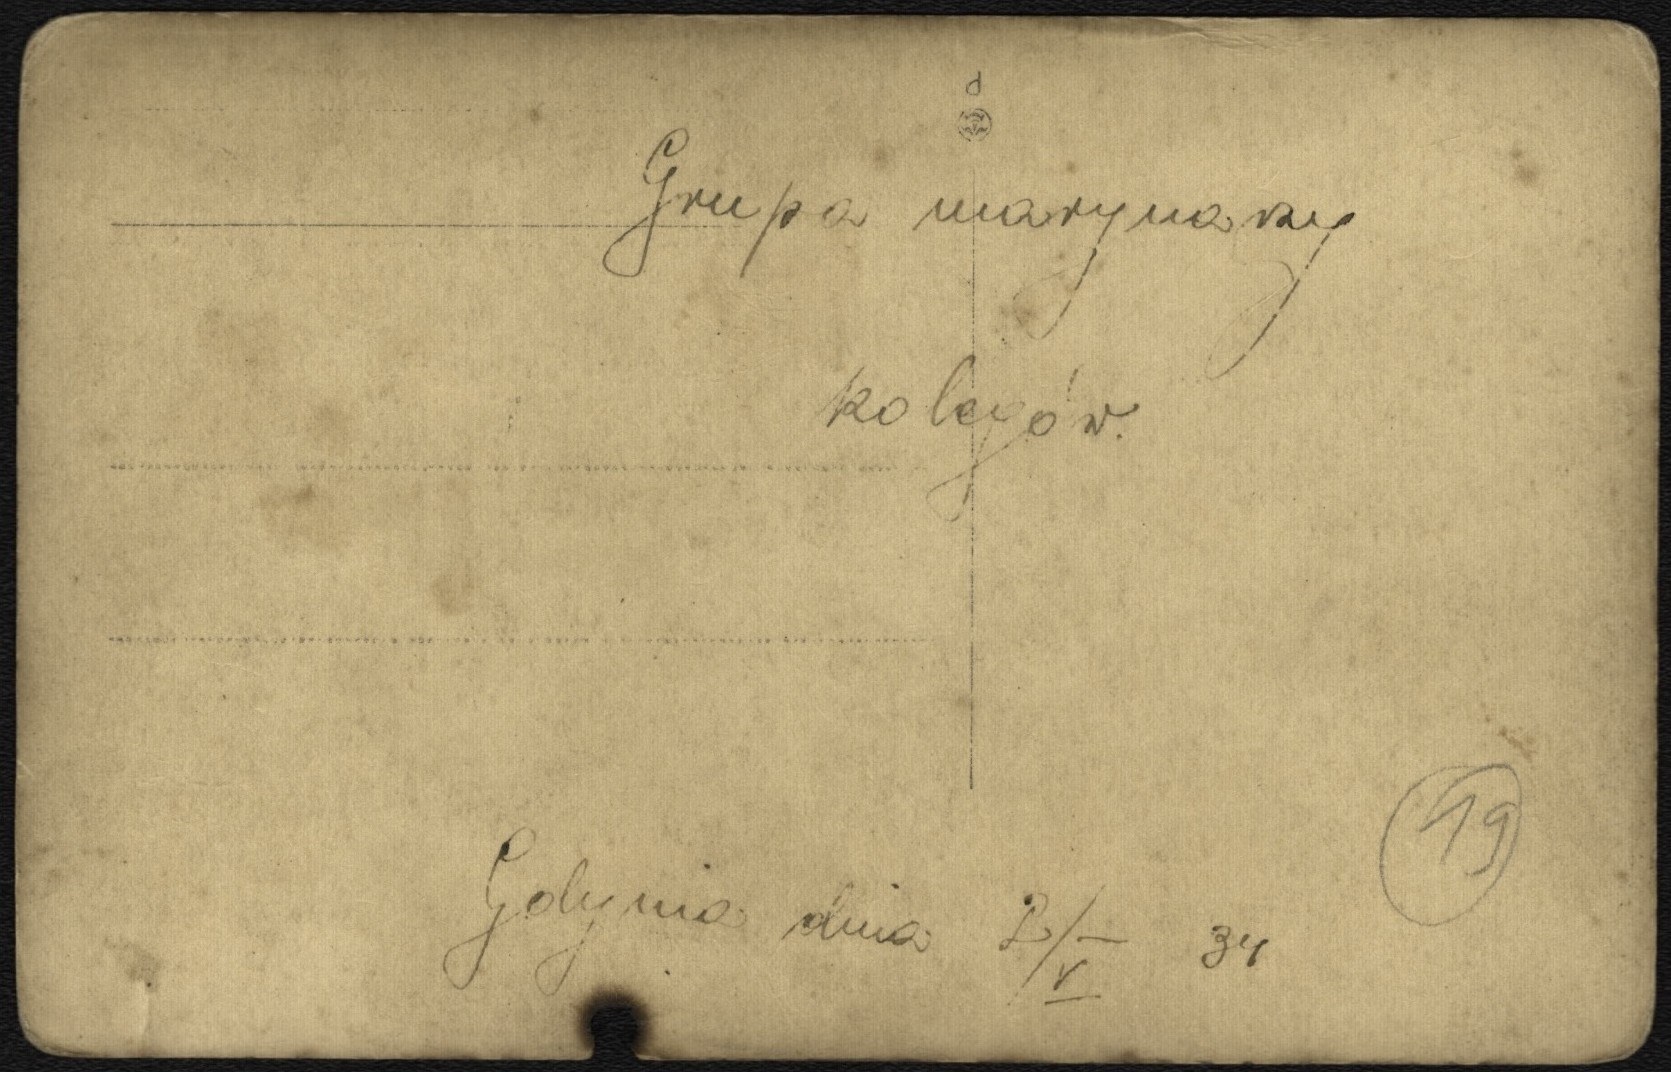 d
Grupa marynarzy
kolegów.
Gdynia dnia 2/V 34
19